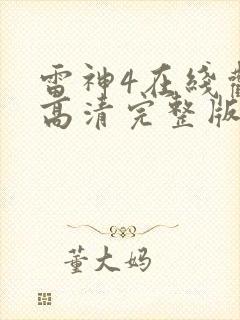 雷神4在线
高清完整版
董大妈